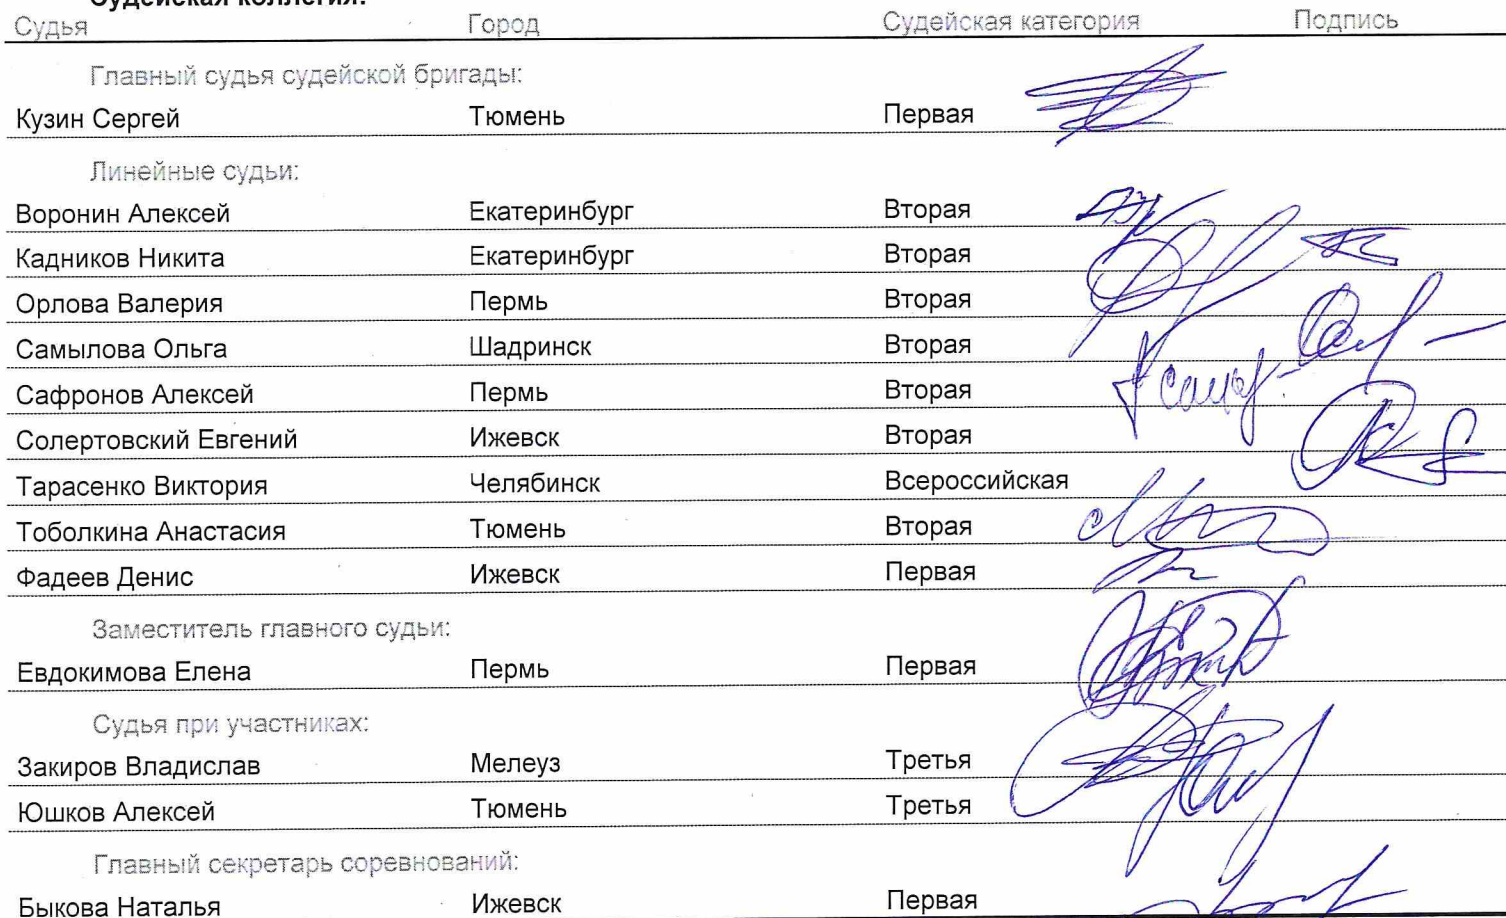 Судейская коллегия:
Судья Город Судейская категория Подпись
Главный судья судейской бригады:
Кузин Сергей Тюмень Первая
Линейные судьи:
Воронин Алексей Екатеринбург Вторая
Кадников Никита Екатеринбург Вторая
Орлова Валерия Пермь Вторая
Самылова Ольга Шадринск Вторая
Сафронов Алексей Пермь Вторая
Солертовский Евгений Ижевск Вторая
Тарасенко Виктория Челябинск Всероссийская
Тоболкина Анастасия Тюмень Вторая
Фадеев Денис Ижевск Первая
Заместитель главного судьи:
Евдокимова Елена Пермь Первая
Судья при участниках:
Закиров Владислав Мелеуз Третья
Юшков Алексей Тюмень Третья
Главный секретарь соревнований:
Быкова Наталья Ижевск Первая